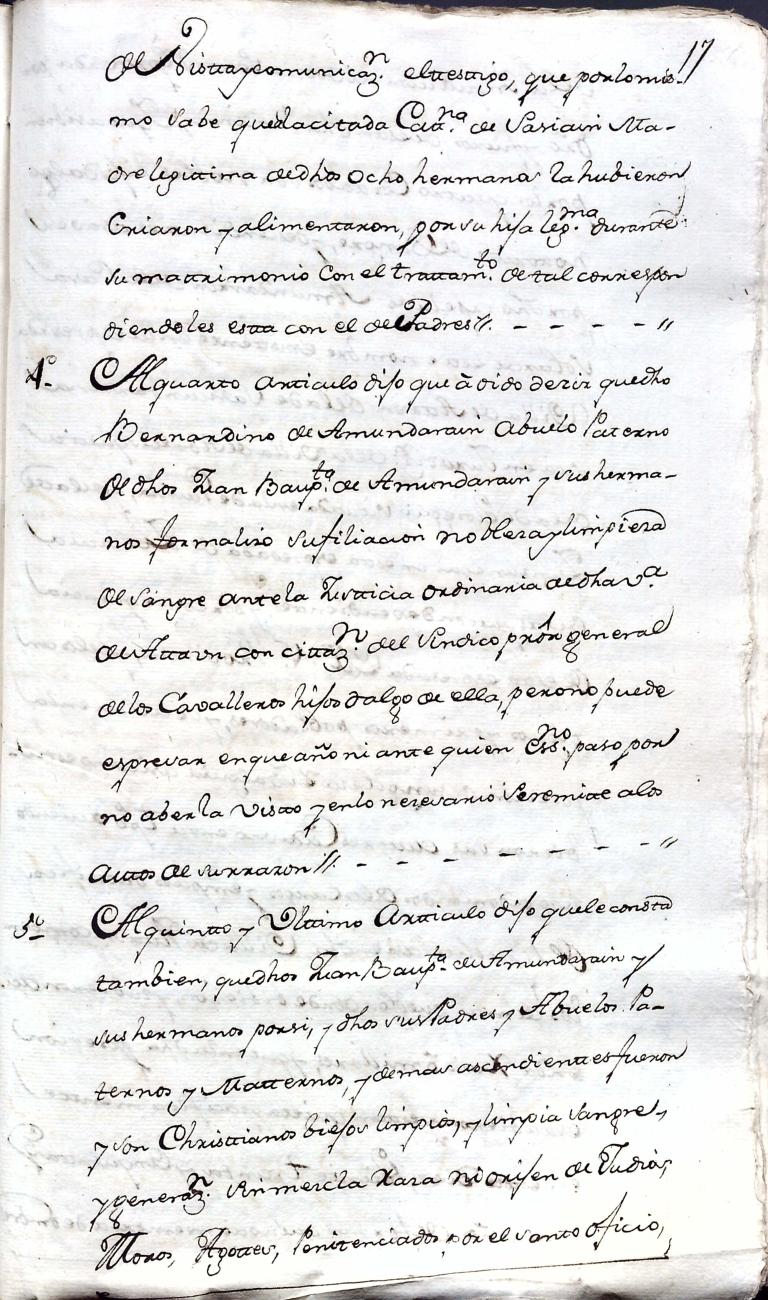 17
de Vistta y comunicazn. el ttesttigo, que por lo mis-
mo sabe que a la citada Catna. de Sasiain Ma-
dre legittima de dhos ocho hermanos la hubieron
Criaron y alimentaron, por su hija legma. durante
su mattrimonio con el trattamto. de tal correspon
diendoles estta con el de Padres //. - - - - //
4º. Al quarto articulo dijo que à oido dezir que dho
Bernardino de Amundarain Abuelo Paterno
de dhos Juan Baupta. de Amundarain y sus herma-
nos formalizo su filiacion nobleza y limpieza
de sangre ante la Justicia ordinaria de dha va.
de Attaun, con cittazn. del Sindico pror general
de los Cavalleros hijos dalgo de ella, pero no puede
espresar en que año ni ante quien essno. paso por
no aberla visto y en lo nezesario se remite a los
auttos de su razon //. - - - - - - //
5º Al quintto y Ultimo Articulo dijo que le consta
tambien, que dhos Juan Baupta. de Amundarain y
sus hermanos por si, y dhos sus Padres y Abuelos Pa-
ternos y Matternos, y demas ascendienttes fueron
y son Christtianos biejos limpios, y limpia sangre,
y generazn. sin mezcla Raza ni orijen de Judios,
Moros, Agottes, Penitenciados por el santo oficio,